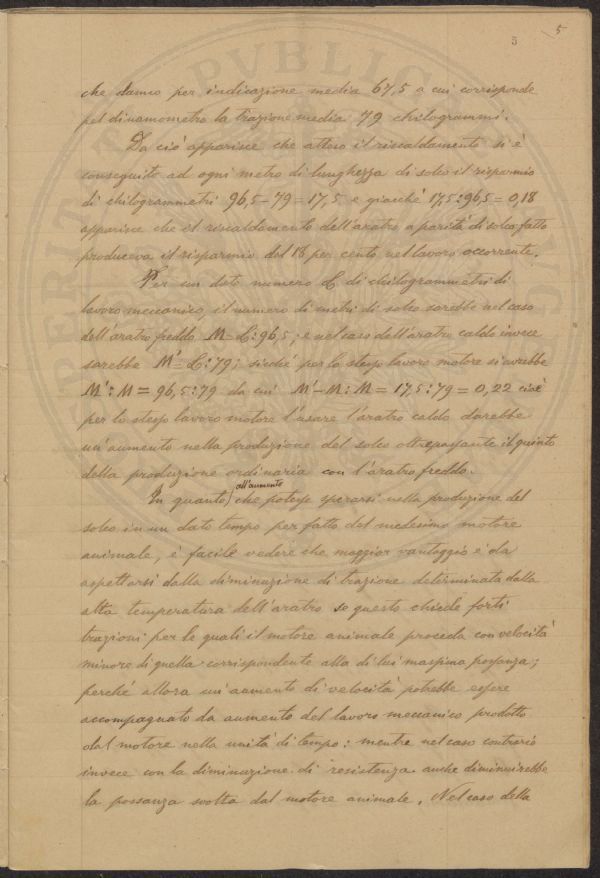 5
3
che danno per indicazione media 67,5 a cui corrisponde
pel dinamometro la trazione media 79 chilogrammi.
Da ciò apparisce che atteso il riscaldamento si è
conseguito ad ogni metro di lunghezza di solco il risparmio
di chilogrammetri 96,5 – 79 = 17,5 e giacchè 17,5 : 96,5 = 0,18
apparisce che il riscaldamento dell'aratro a parità di solco fatto
produceva il risparmio del 18 per cento nel lavoro occorrente.
Per un dato numero L di chilogrammetri di
lavoro meccanico, il numero di metri di solco sarebbe nel caso
dell'aratro freddo M = L : 96,5; e nel caso dell'aratro caldo invece
sarebbe M' = L : 79; sicchè per lo stesso lavoro motore si avrebbe
M' : M = 96,5 : 79 da cui M' – M : M = 17,5 : 79 = 0,22 cioè
per lo stesso lavoro motore l'usare l'aratro caldo darebbe
un'aumento nella produzione del solco oltrepassante il quinto
della produzione ordinaria con l'aratro freddo.
all'aumento
In quanto che potesse sperarsi nella produzione del
solco in un dato tempo per fatto del medesimo motore
animale, è facile vedere che maggior vantaggio è da
aspettarsi dalla diminuzione di trazione determinata dalla
alta temperatura dell'aratro se questo chiede forti
trazioni per le quali il motore animale proceda con velocità
minore di quella corrispondente alla di lui massima possanza;
perché allora un'aumento di velocità potrebbe essere
accompagnato da aumento del lavoro meccanico prodotto
dal motore nella unità di tempo: mentre nel caso contrario
invece con la diminuzione di resistenza anche diminuirebbe
la possanza svolta dal motore animale. Nel caso della